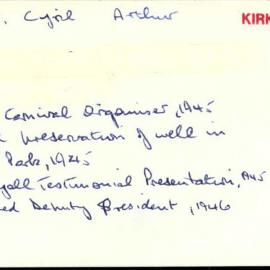 . Cyril Arthur KIRK
Carnival Organiser, 1945
Preservation of well in
Park, 1945
Testimonial Presentation, 1945
ed Deputy President, 1946